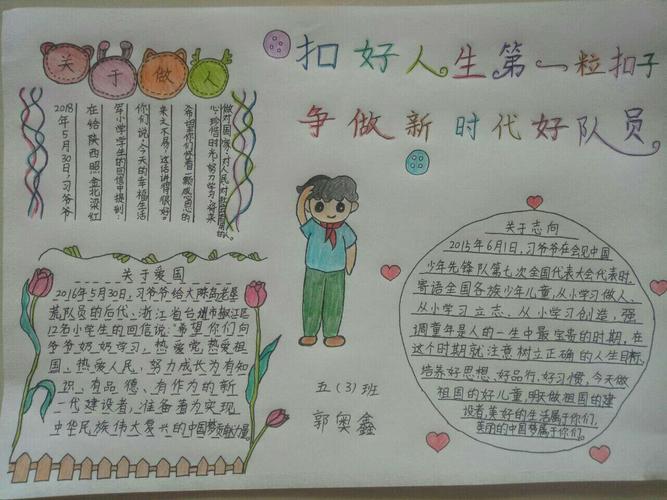 扣好人生第一粒扣子
争做新时代好队员
关于做人
2018年5月30日,习爷爷
在给陕西照金北梁红
军小学学生的回信中提到:
你们说,今天的幸福生活
来之不易,这话讲得很好。
希望你们怀着一颗感恩的
心,珍惜时光,努力学习,将来
做对国家、对人民、对社会有用的人。
关于爱国
2016年5月30日,习爷爷给大陈岛老垦
荒队员的后代、浙江省台州市椒江区
12名小学生的回信说:"希望你们向
爷爷奶奶学习,热爱党、热爱祖
国、热爱人民,努力成长为有知
识、有品德、有作为的新
一代建设者,准备着为实现
中华民族伟大复兴的中国梦贡献力量。
五(3)班
郭奥鑫
关于志向
2015年6月1日,习爷爷在会见中国
少年先锋队第七次全国代表大会代表时,
寄语全国各族少年儿童,从小学习做人、
从小学习立志、从小学习创造,强
调童年是人的一生中最宝贵的时期,在
这个时期就注意树立正确的人生目标,
培养好思想、好品行、好习惯,今天做
祖国的好儿童,明天做祖国的建
设者,美好的生活属于你们,
美丽的中国梦属于你们。